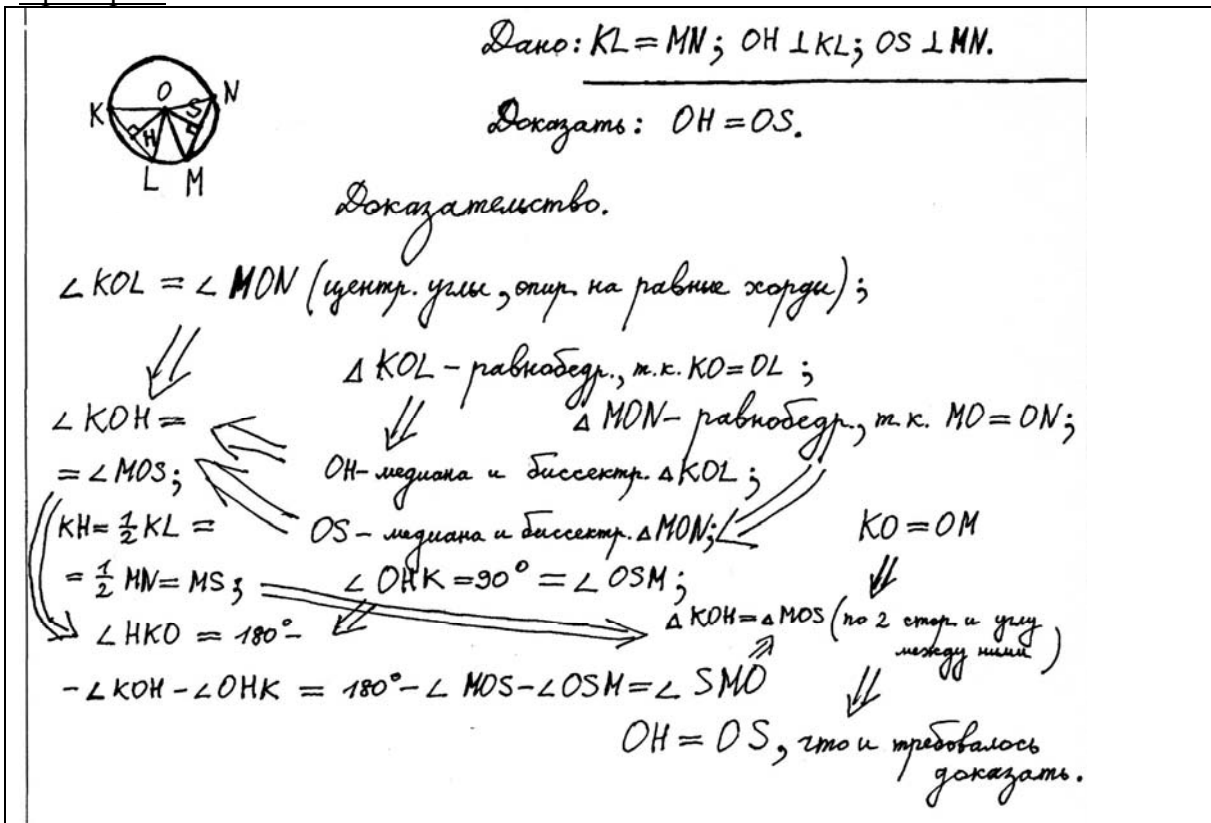 Дано: KL = MN; OH ⊥ KL; OS ⊥ MN.
Доказать: OH = OS.
K O N S H L M
Доказательство.
∠ KOL = ∠ MON (центр. углы, опир. на равные хорды);
Δ KOL – равнобедр., т.к. KO = OL ;
∠ KOH =
Δ MON – равнобедр., т.к. MO = ON;
= ∠ MOS;
OH – медиана и биссектр. Δ KOL ;
KH = 1/2 KL =
OS – медиана и биссектр. Δ MON;
KO = OM
= 1/2 MN = MS;
∠ OHK = 90° = ∠ OSM ;
∠ HKO = 180° –
Δ KOH = Δ MOS (по 2 стор. и углу между ними)
– ∠ KOH – ∠ OHK = 180° – ∠ MOS – ∠ OSM = ∠ SMO
OH = OS, что и требовалось
доказать.